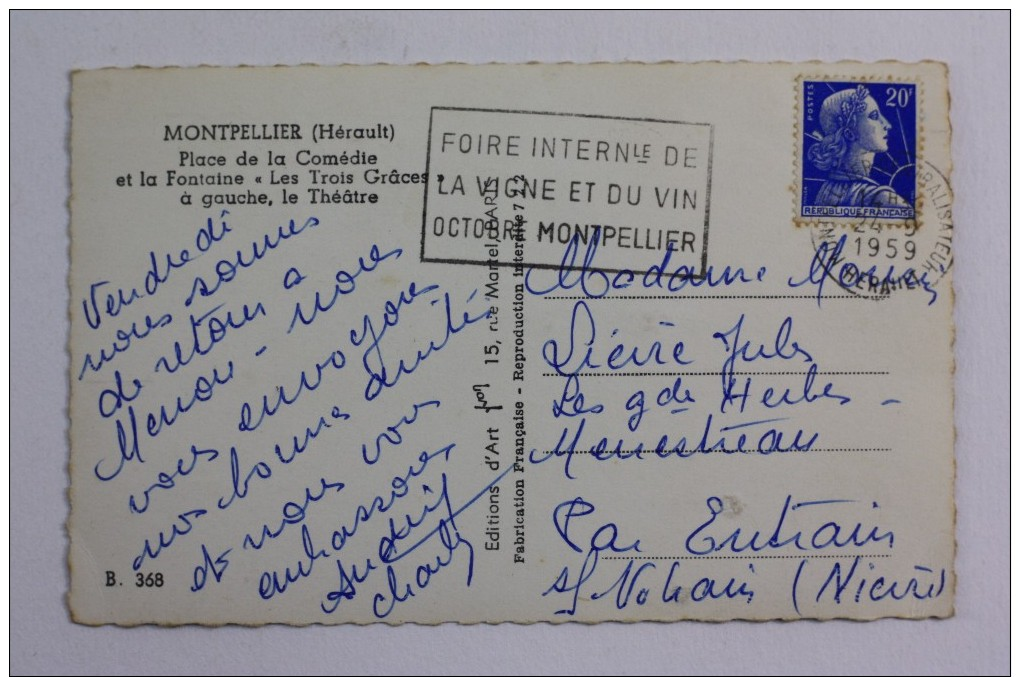 MONTPELLIER (Hérault)
Place de la Comédie
et la Fontaine « Les Trois Grâces »
à gauche, le Théâtre
FOIRE INTERNLE DE
LA VIGNE ET DU VIN
OCTOBRE MONTPELLIER
POSTES
20F
RÉPUBLIQUE FRANÇAISE
24 - 9
1959
Vendredi
nous sommes
de retour à
Menou - nous
vous envoyons
nos bonnes amitiés
et nous vous
embrassons
charles
B. 368
Editions d'Art Yvon 15, rue Martel, PARIS
Fabrication Française - Reproduction interdite 7 22
Madame
Lièvre Jules
Les gdes Herbes -
Menestreau
Par Entrain
s/ Nohain (Nièvre)